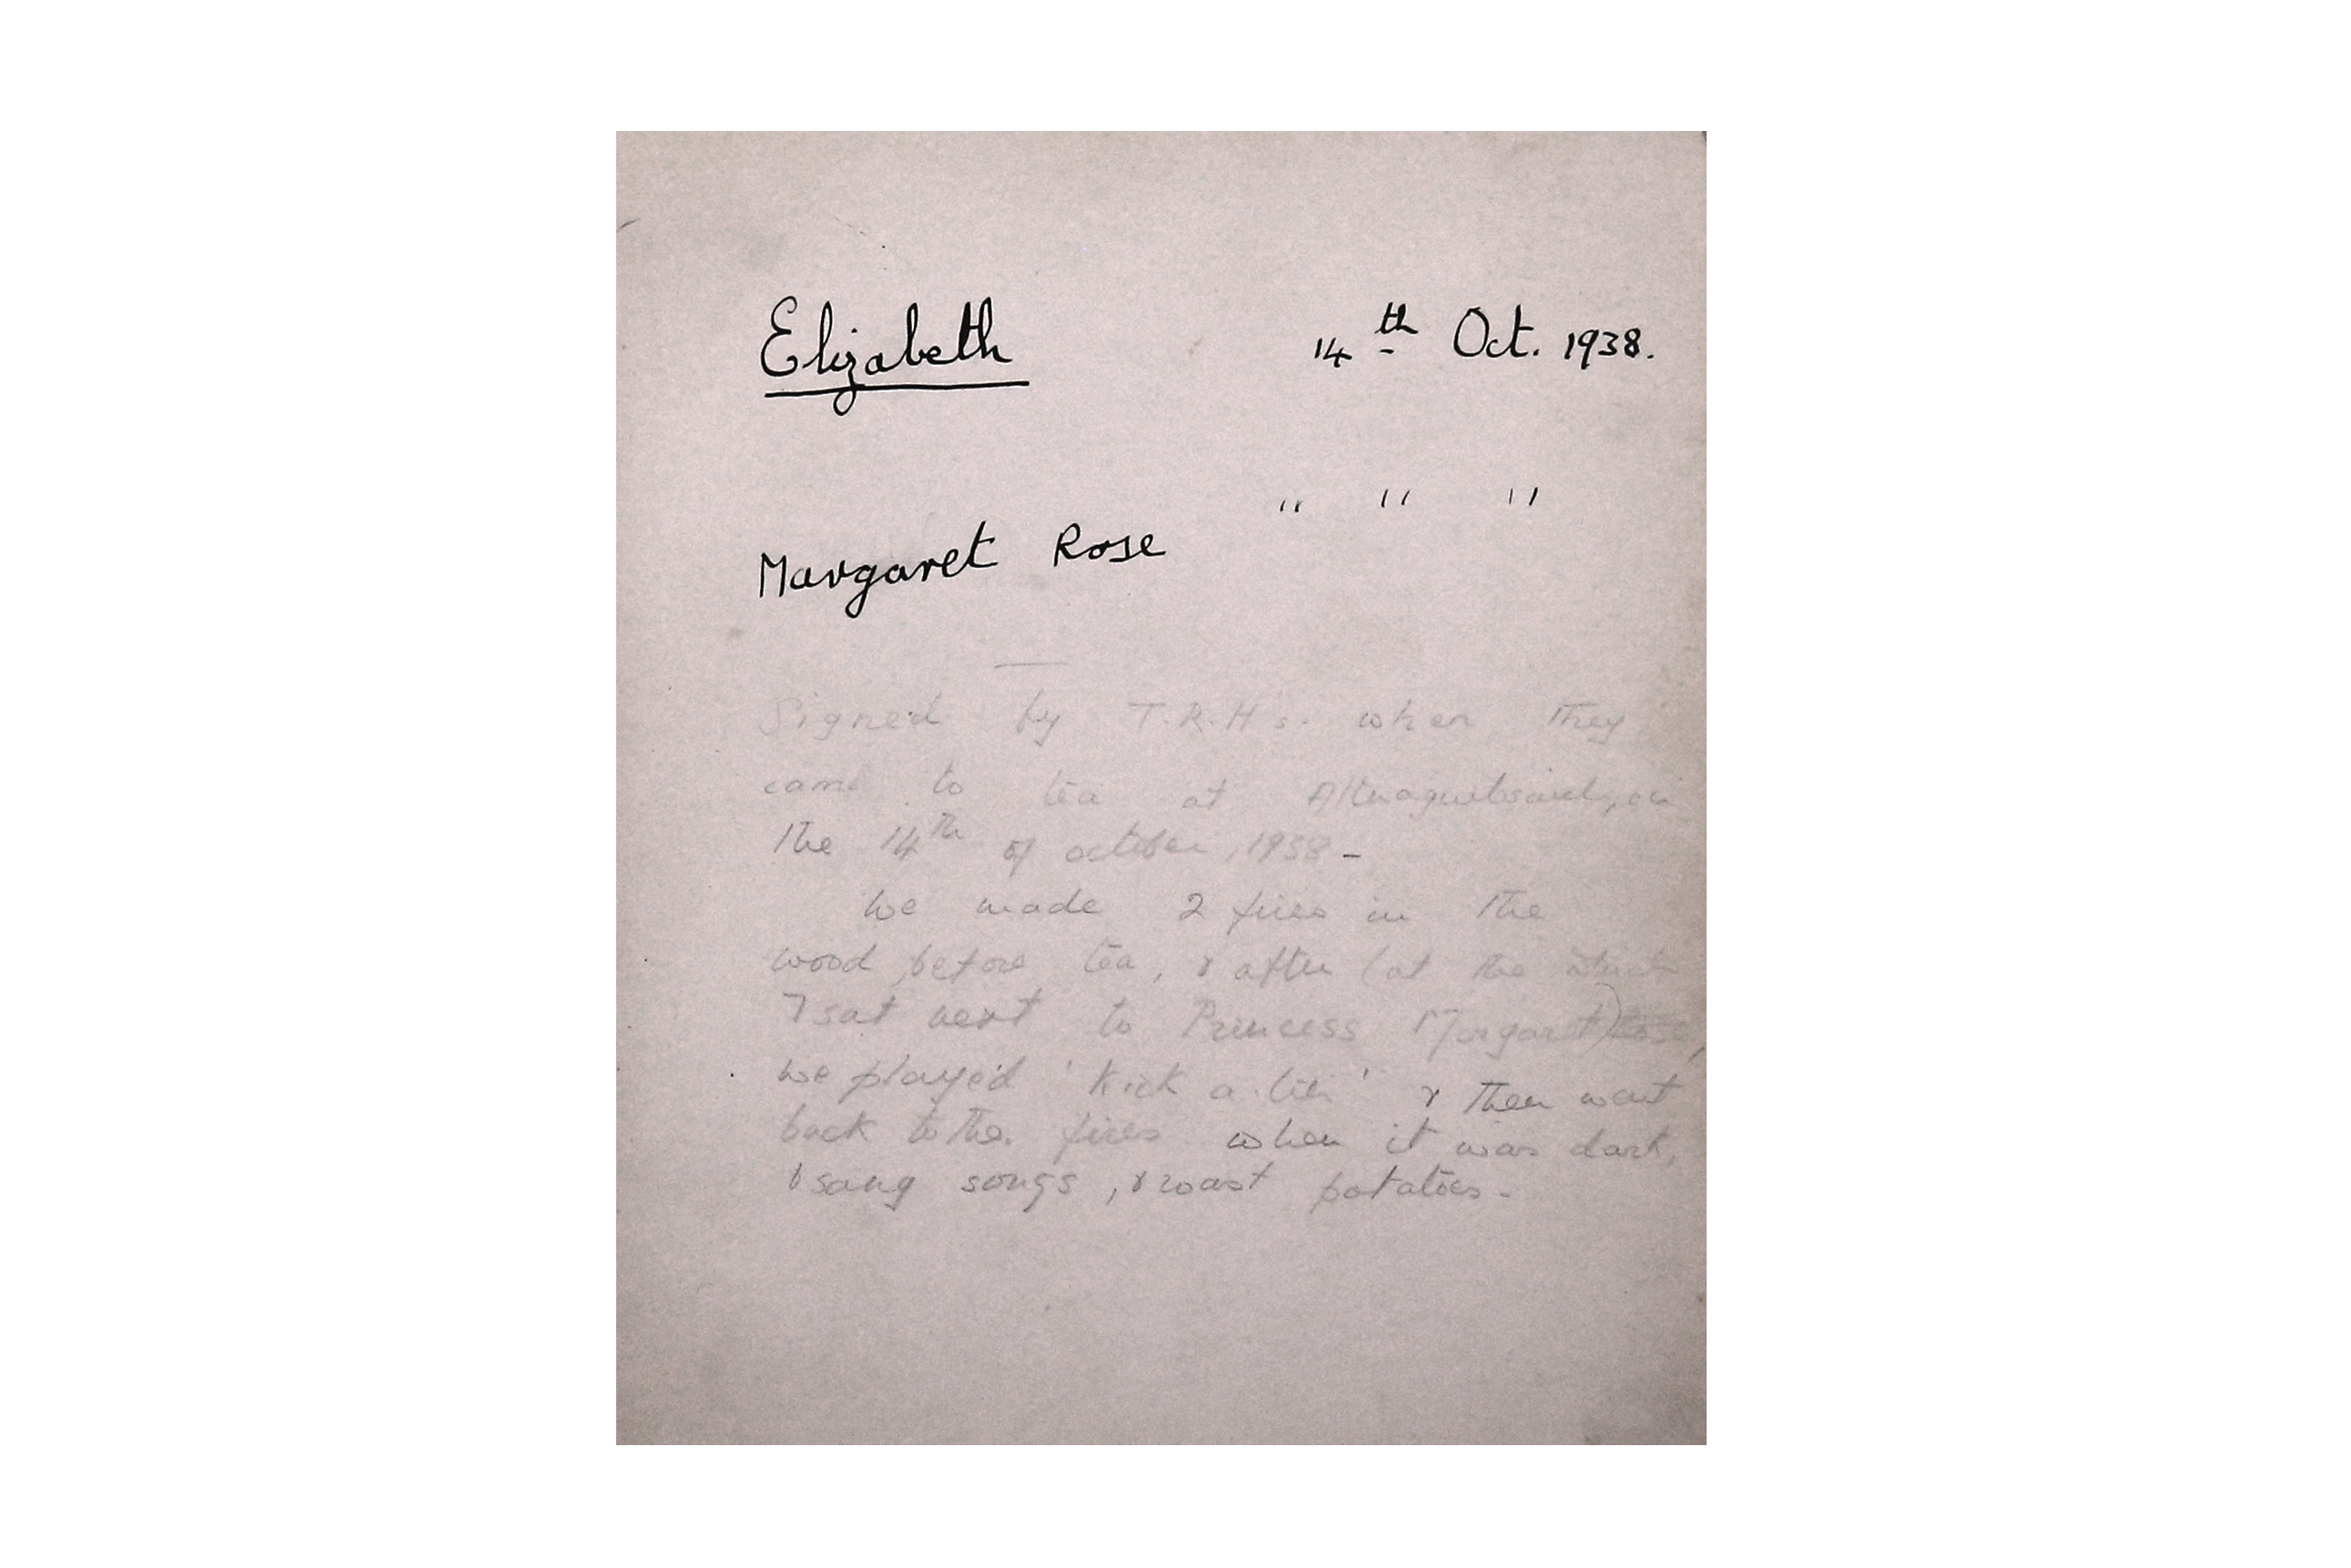 Elizabeth 14th Oct. 1938.
" " "
Margaret Rose
Signed by T.R.H's. when they
came to tea at on
the 14th of october, 1938 -
We made 2 fires in the
wood before tea, & after (at the
I sat next to Princess Margaret) Rose,
we played 'Kick a tin' & then went
back to the fires when it was dark,
& sang songs, & roast potatoes -